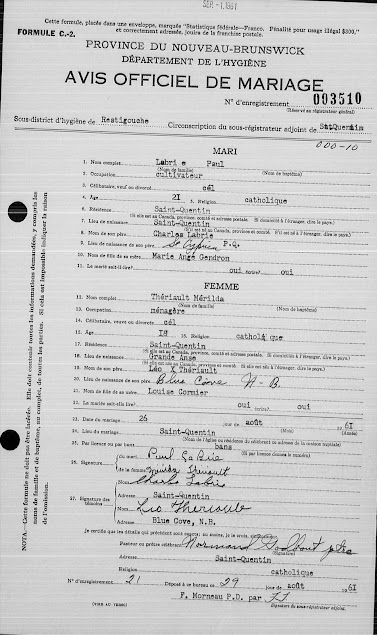 SEP - 1 1961
Cette formule, placée dans une enveloppe, marquée "Statistique fédérale—Franco. Pénalité pour usage illégal $300,"
et correctement adressée, jouira de la franchise postale.
FORMULE C.-2.
PROVINCE DU NOUVEAU-BRUNSWICK
DÉPARTEMENT DE L'HYGIÈNE
AVIS OFFICIEL DE MARIAGE
N° d'enregistrement 003510
(Réservé au régistrateur général)
Sous-district d'hygiène de Restigouche Circonscription du sous-régistrateur adjoint de St Quentin
000-10
MARI
1. Nom complet Labri e Paul
(Nom de famille) (Nom de baptême)
2. Occupation cultivateur
3. Célibataire, veuf ou divorcé cél
4. Age 21 5. Religion catholique
6. Résidence Saint-Quentin
(S'il elle est au Canada, province, comté et adresse postale. Si domicilié à l'étranger, dire le pays.)
7. Lieu de naissance Saint-Quentin
8. Nom de son père Charles Labrie
9. Lieu de naissance de son père St Cyprien P.Q.
10. Nom de fille de sa mère Marie Ange Gendron
11. Le marié sait-il lire? oui écrire? oui
FEMME
12. Nom complet Thériault Mérilda
(Nom de famille) (Nom de baptême)
13. Occupation ménagère
14. Célibataire, veuve ou divorcée cél
15. Age 18 16. Religion catholique
17. Résidence Saint-Quentin
18. Lieu de naissance Grande Anse
19. Nom de son père Léo X Thériault
20. Lieu de naissance de son père Blue Cove N-B.
21. Nom de fille de sa mère Louise Cormier
22. La mariée sait-elle lire? oui écrire? oui
23. Date du mariage 26 jour de août 1961
(Mois)
24. Lieu du mariage Saint-Quentin
25. Par licence ou par bans bans
26. Signature du mari Paul La Brie
de la femme Mérilda Thériault
27. Signature des témoins Charles Labrie
Adresse Saint-Quentin
Nom Léo Theriault
Adresse Blue Cove, N.B.
Je certifie que les détails qui précèdent sont exacts
Pasteur ou prêtre célébrant Normand Godbout ptre
(Signature)
Adresse Saint-Quentin
Religion catholique
N° d'enregistrement 21 Déposé à ce bureau ce 29 jour de août 1961
F. Morneau P.D. par
Signature du sous-régistrateur adjoint.
(VOIR AU VERSO)
NOTA.—Cette formule ne doit pas être pliée. Elle doit contenir toutes les informations demandées, y compris les
noms de famille et de baptême, au complet, de toutes les parties. Si cela est impossible indiquer la raison
de l'omission.